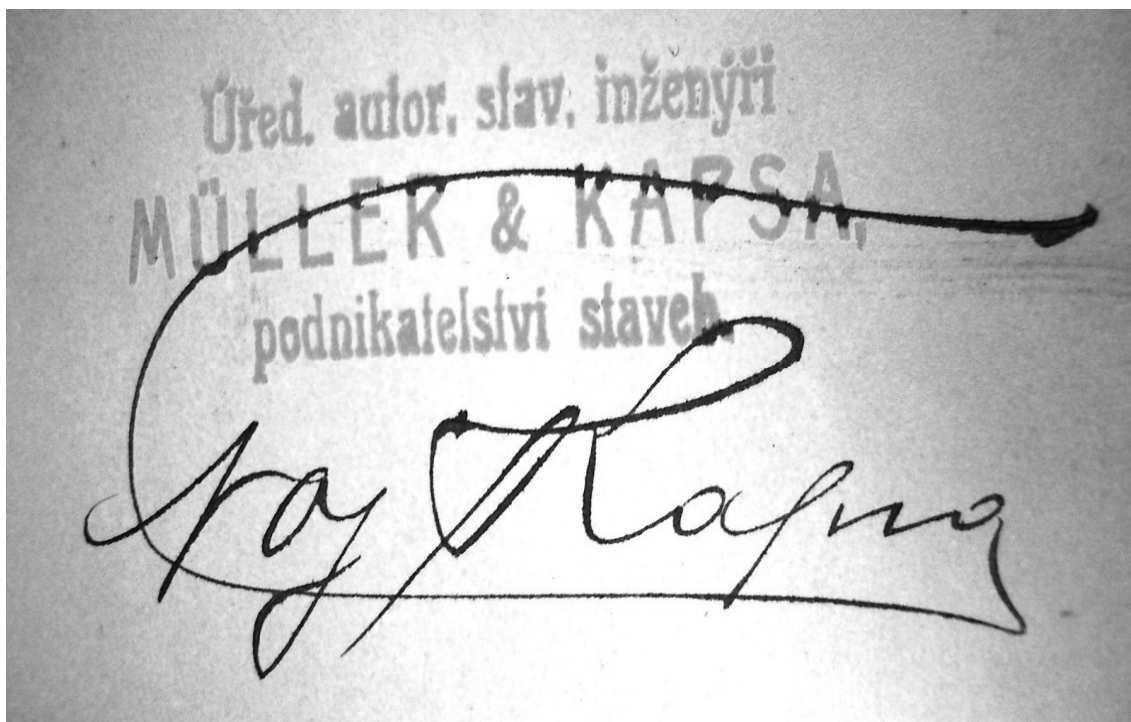 Úřed. autor. stav. inženýři
MÜLLER & KAPSA,
podnikatelství staveb.
Kapsa